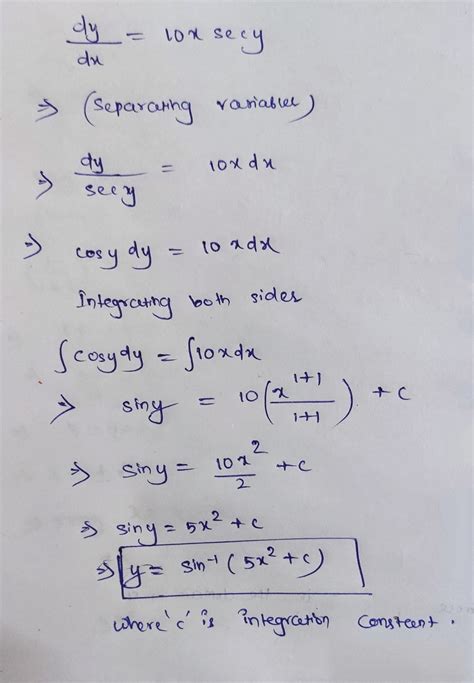 dy/dx = 10x secy
⇒ (Separating variables)
⇒ dy/secy = 10x dx
⇒ cosy dy = 10 x dx
Integrating both sides
∫cosydy = ∫10xdx
⇒ siny = 10(x^(1+1)/(1+1)) + c
⇒ siny = 10x²/2 + c
⇒ siny = 5x² + c
⇒ y = sin⁻¹ (5x² + c)
where 'c' is integration constant.